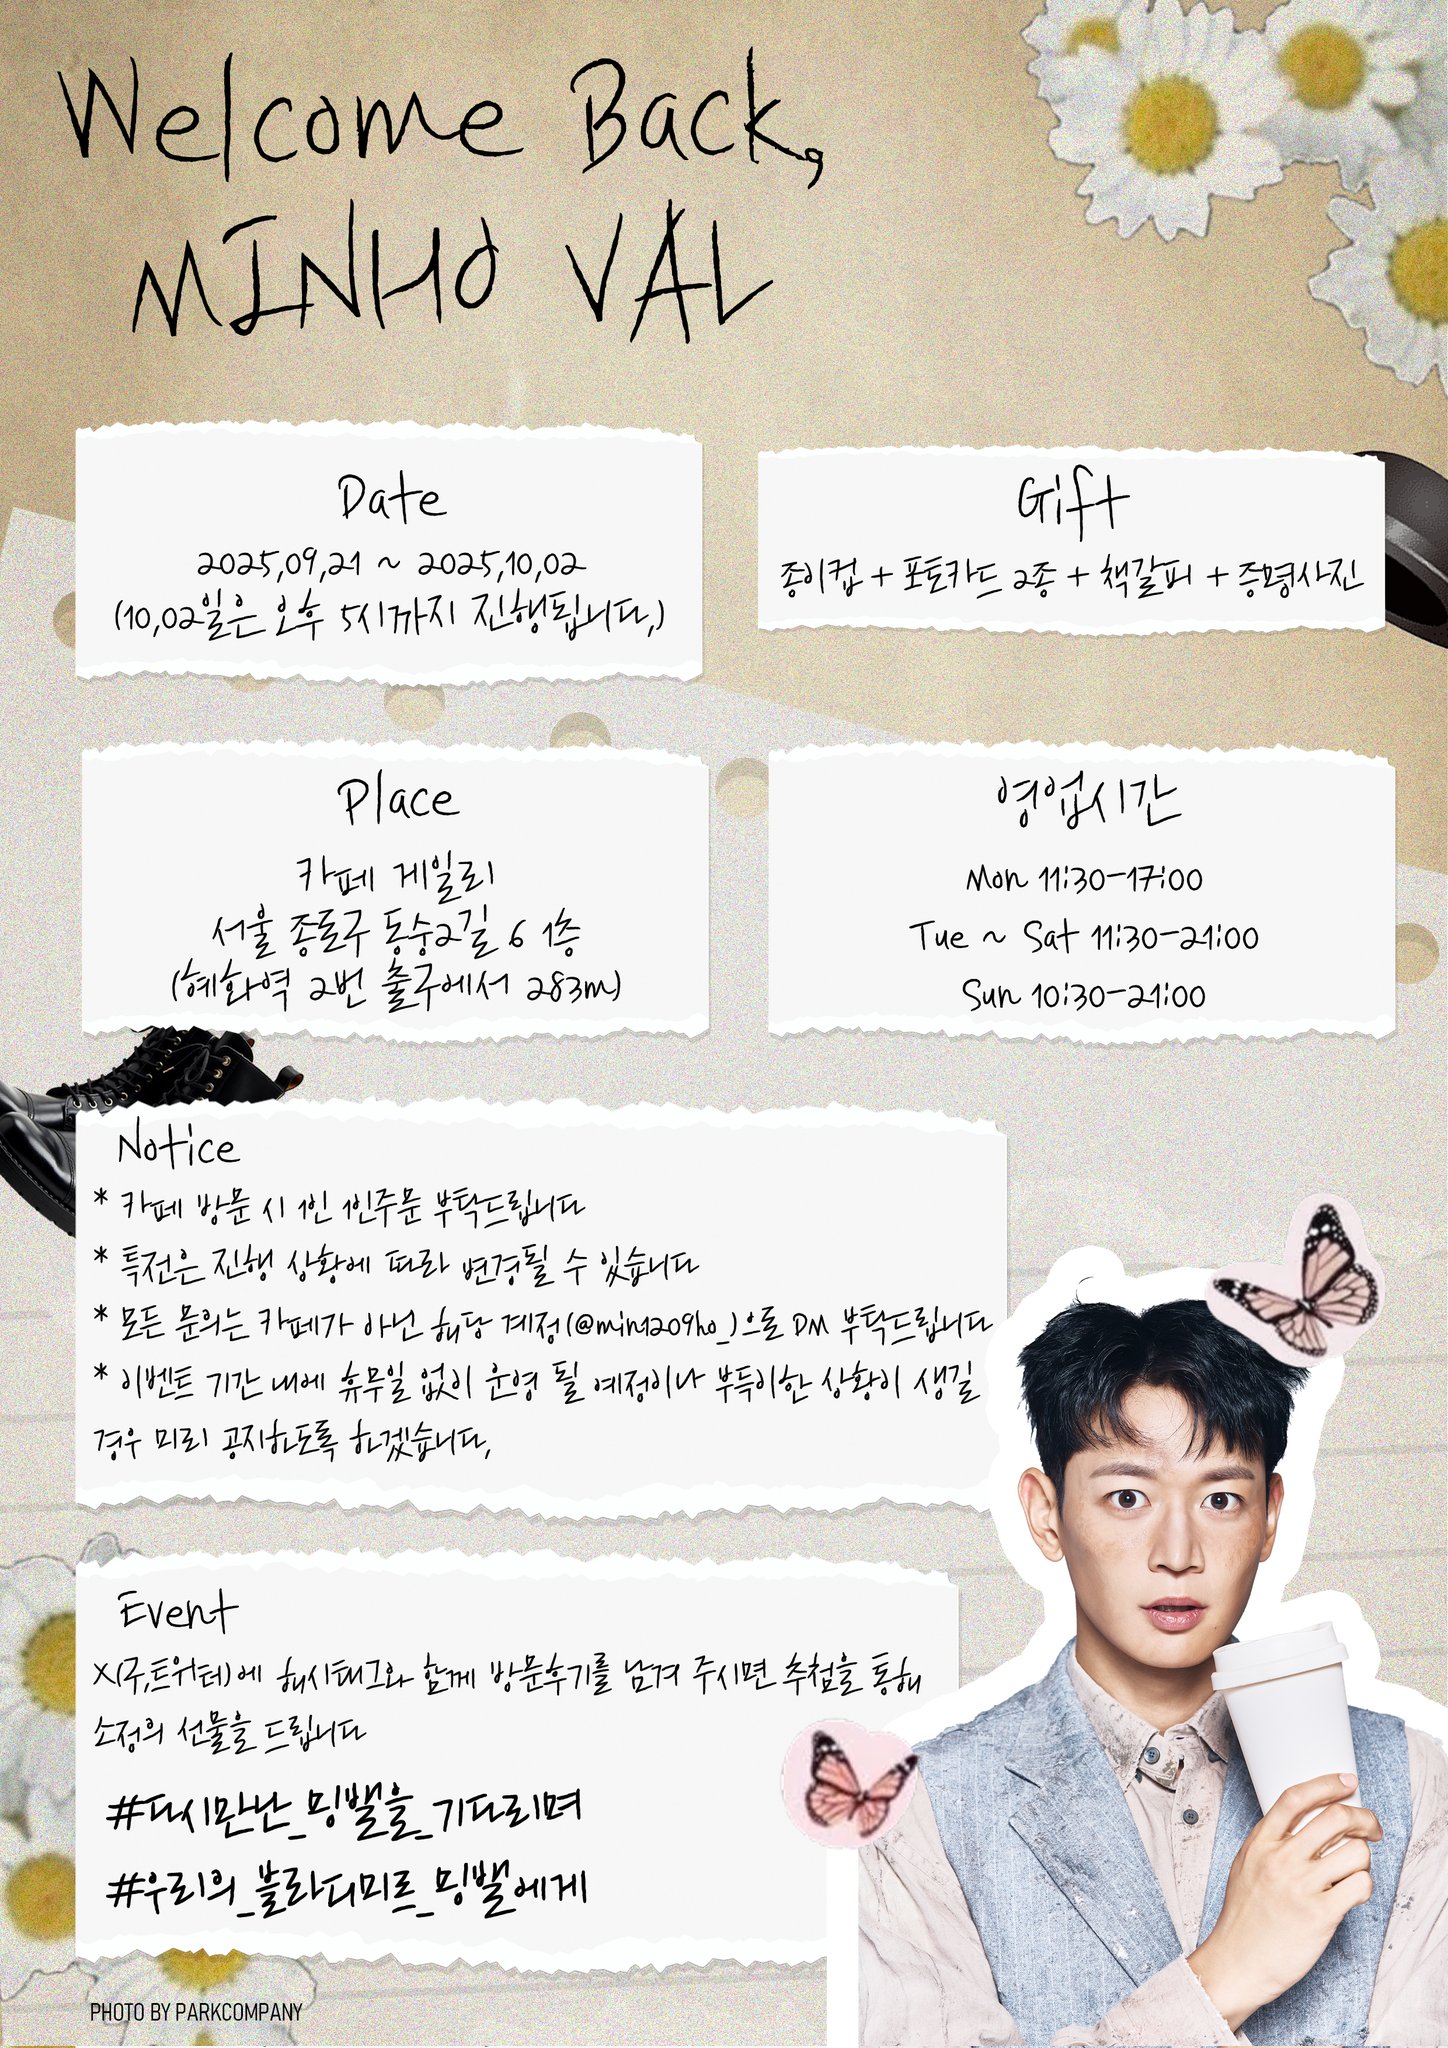 Welcome Back,
MINHO VAL
Date
2025,09,21 ~ 2025,10,02
(10,02일은 오후 5시까지 진행됩니다,)
Gift
종이컵 + 포토카드 2종 + 책갈피 + 증명사진
Place
카페 게일리
서울 종로구 동숭2길 6 1층
(혜화역 2번 출구에서 283m)
영업시간
Mon 11:30-17:00
Tue ~ Sat 11:30-21:00
Sun 10:30-21:00
Notice
* 카페 방문 시 1인 1인주문 부탁드립니다
* 특전은 진행 상황에 따라 변경될 수 있습니다
* 모든 문의는 카페가 아닌 해당 계정(@min1209ho_)으로 DM 부탁드립니다
* 이벤트 기간 내에 휴무일 없이 운영 될 예정이나 부득이한 상황이 생길
경우 미리 공지하도록 하겠습니다,
Event
X(구,트위터)에 해시태그와 함께 방문후기를 남겨 주시면 추첨을 통해
소정의 선물을 드립니다
#다시만난_밍밸을_기다리며
#우리의_블라디미르_밍밸에게
PHOTO BY PARKCOMPANY